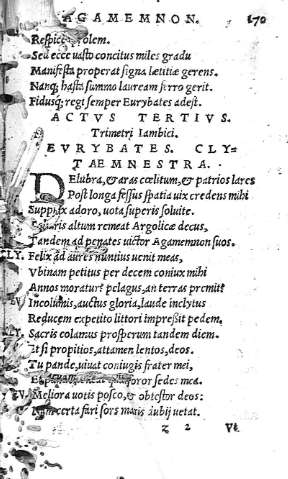 AGAMEMNON. 170
Respice prolem.
Sed ecce uasto concitus miles gradu
Manifesta properat signa lætitiæ gerens.
Nanq; hasta summo lauream ferro gerit.
Fidusq; regi semper Eurybates adest.
ACTVS TERTIVS.
Trimetri Iambici.
EVRYBATES. CLY-
TAEMNESTRA.
DElubra, & aras cœlitum, & patrios lares
Post longa fessus spatia uix credens mihi
Supplex adoro, uota superis soluite.
altum remeat Argolicæ decus,
Tandem ad penates uictor Agamemnon suos.
CLY. Felix ad aures nuntius uenit meas,
Vbinam petitus per decem coniux mihi
Annos moratur? pelagus, an terras premit?
EV. Incolumis, auctus gloria, laude inclytus
Reducem expetito littori impreßit pedem.
CLY. Sacris colamus prosperum tandem diem.
Et si propitios, attamen lentos, deos.
Tu pande, uiuat coniugis frater mei,
Et soror sedes mea.
EV. Meliora uotis posco, & obtestor deos:
Nam certa fari sors maris dubij uetat.
z 2 Vt